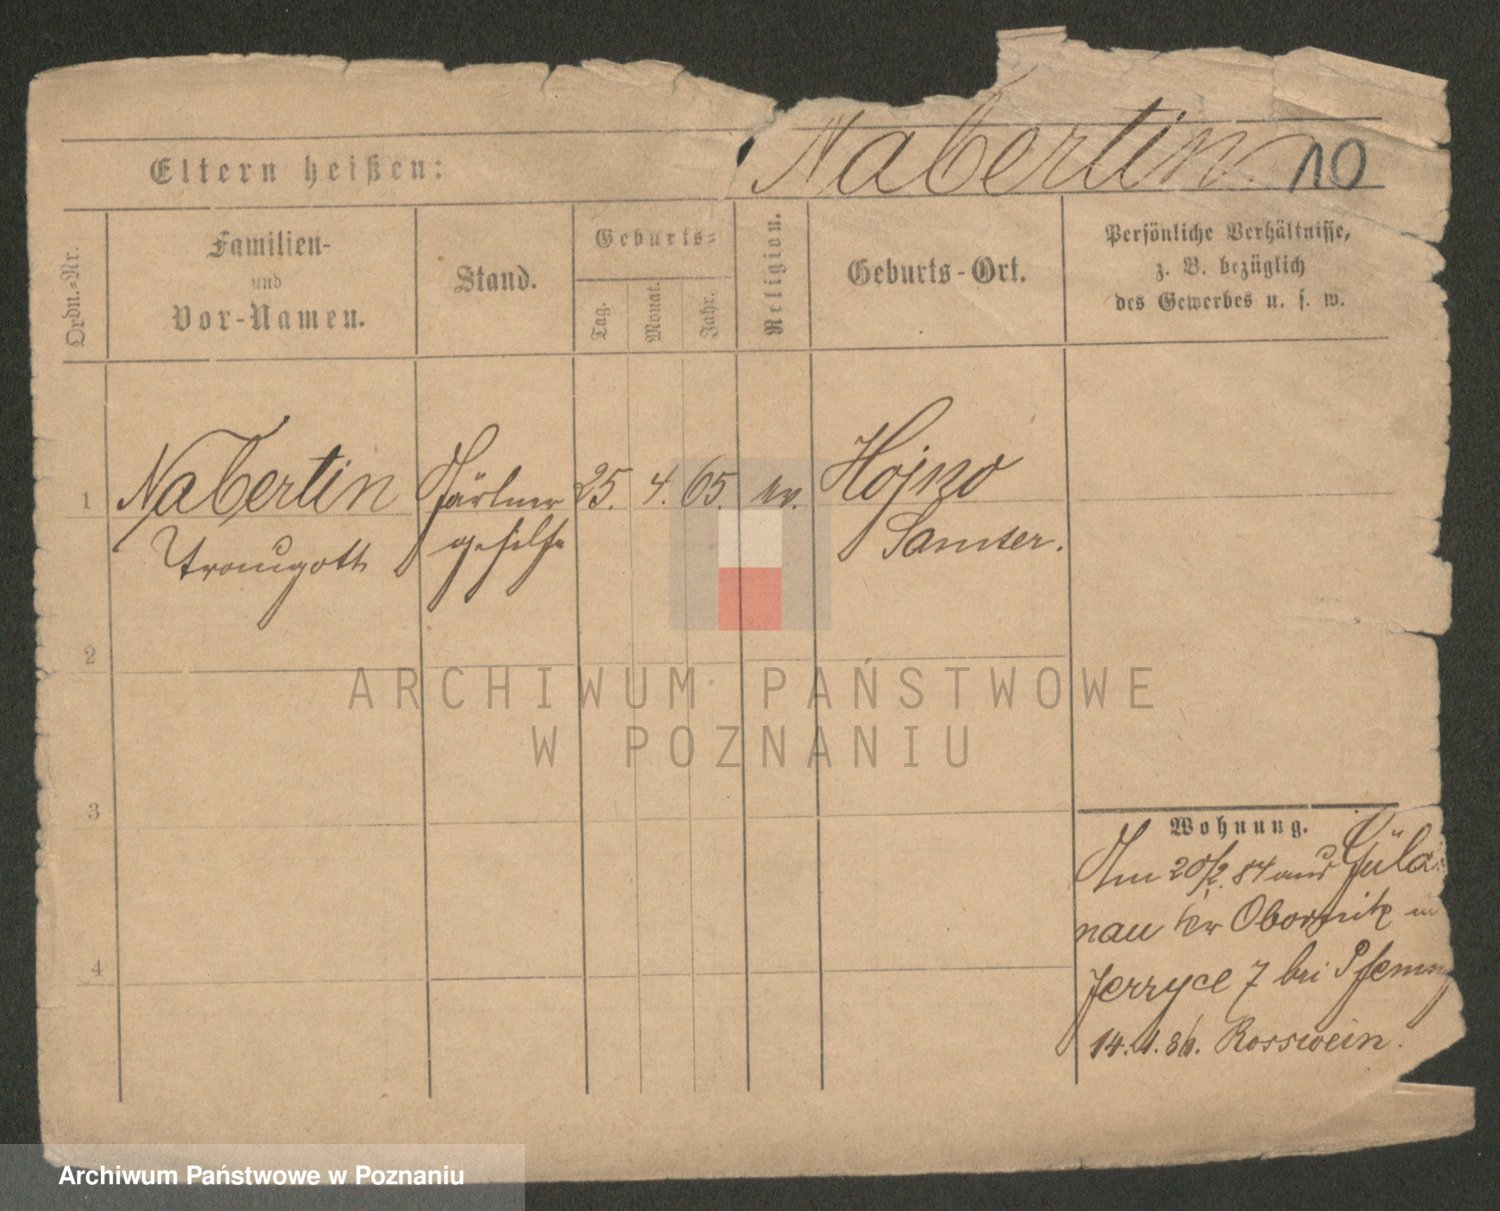 Nabertin 10
Eltern heißen:
Ordn.-Nr.
Familien-
und
Vor-Namen.
Stand.
Geburts-
Tag.
Monat.
Jahr.
Religion.
Geburts-Ort.
Persönliche Verhältnisse,
z. B. bezüglich
des Gewerbes u. s. w.
1 Nabertin Gärtner 25. 4. 65. ev. Hojno
Traugott gehilfe Samter.
2
3
4
Wohnung.
Am 20/2. 84 aus Güld
nau Kr Obornik in
Jerzyce 7 bei
14.1.86. Rosswein.
ARCHIWUM PAŃSTWOWE
W POZNANIU
Archiwum Państwowe w Poznaniu